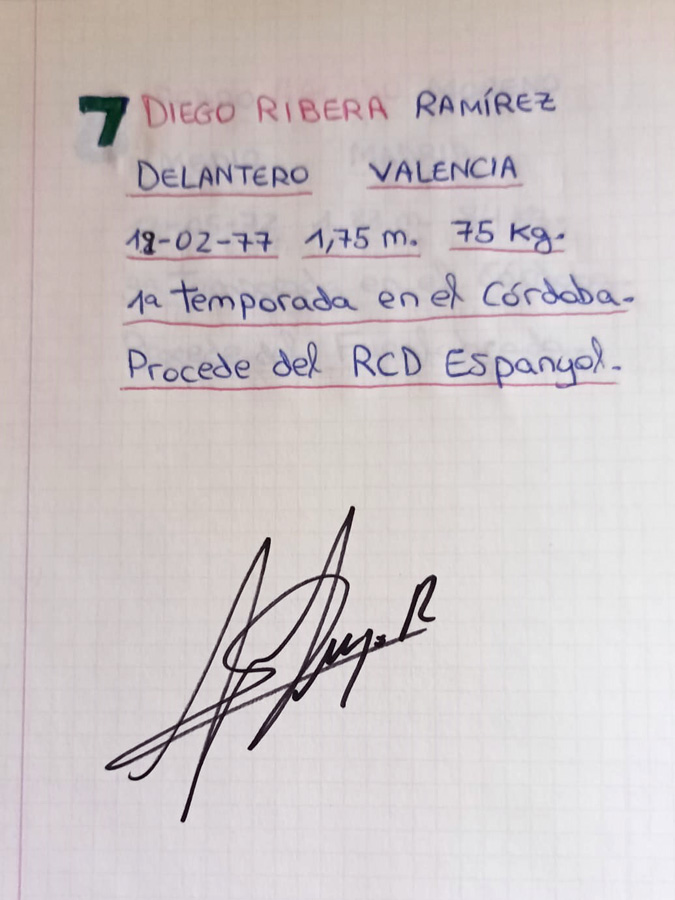 7 DIEGO RIBERA RAMÍREZ
DELANTERO VALENCIA
18-02-77 1,75 m. 75 Kg.
1ª temporada en el Córdoba.
Procede del RCD Espanyol.